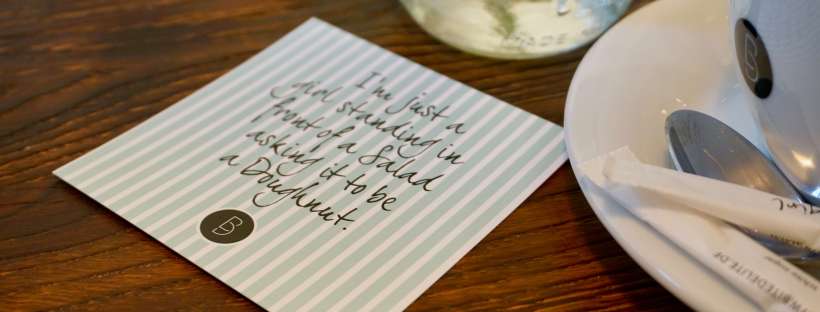 I'm just a
girl standing in
front of a Salad
asking it to be
a Doughnut.
B
B
WWW.BITEDELITE.DE